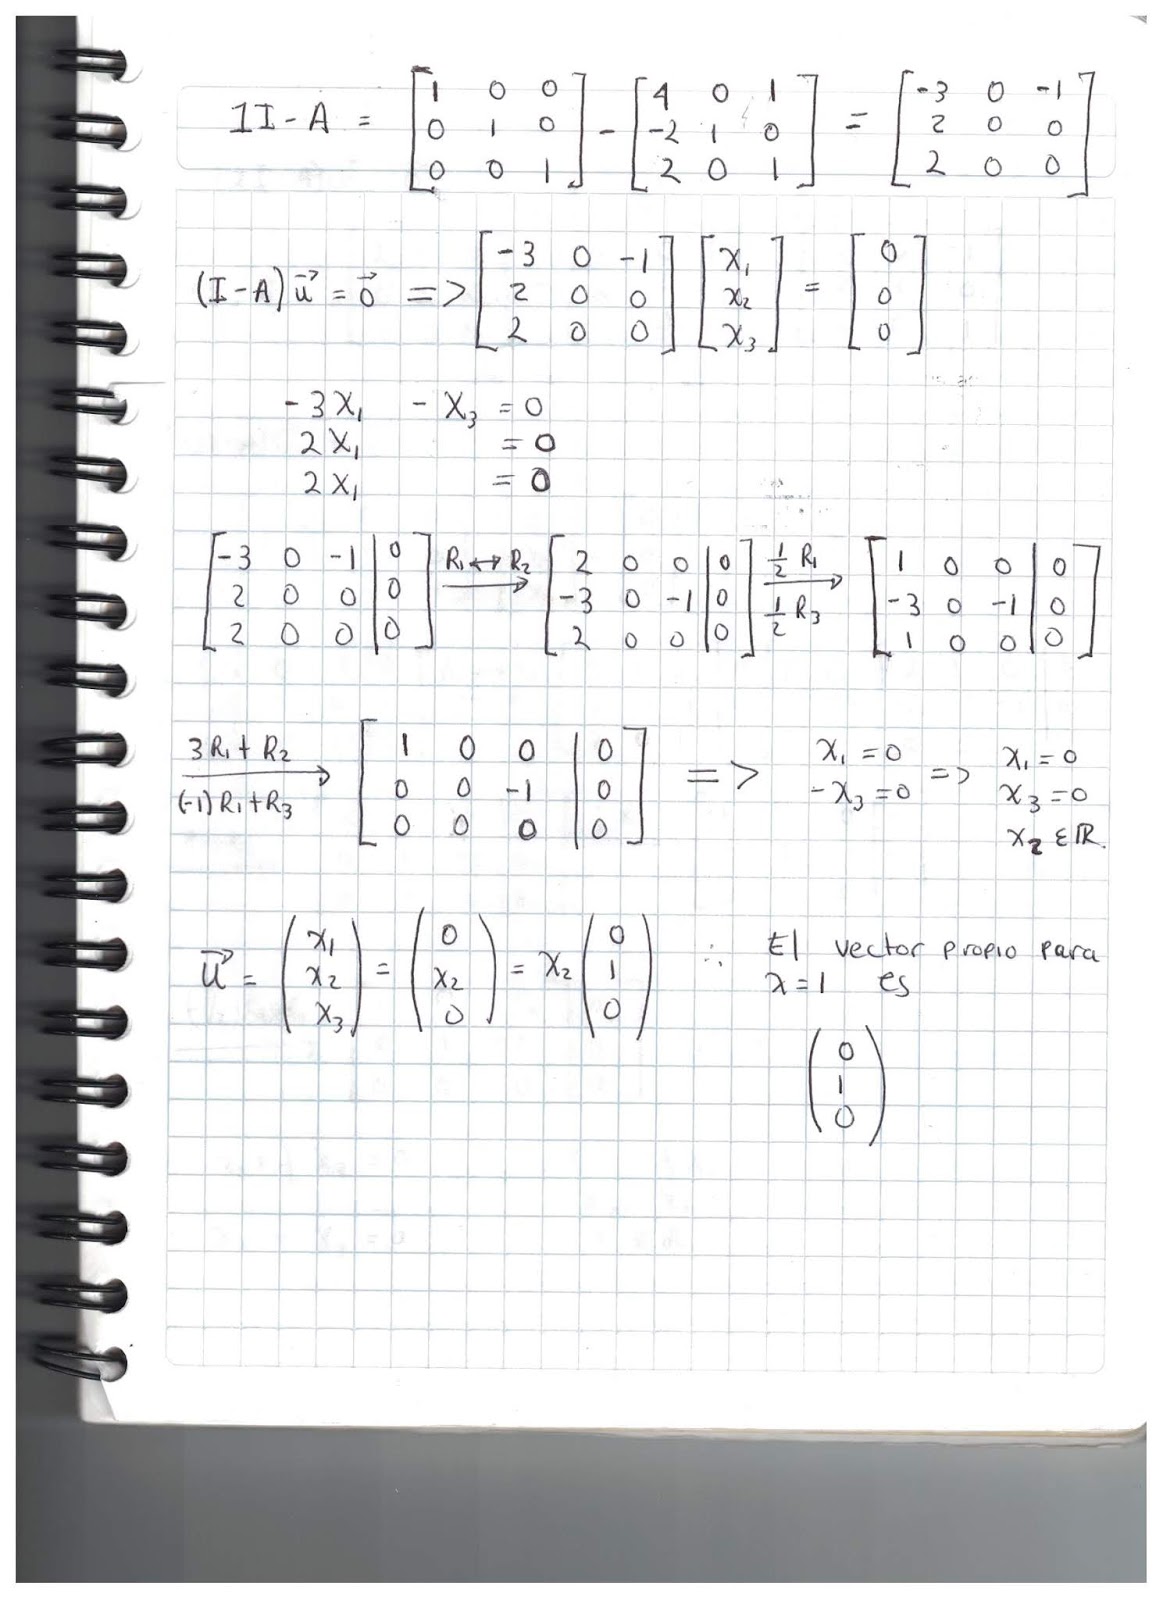 1I - A = [1 0 0; 0 1 0; 0 0 1] - [4 0 1; -2 1 0; 2 0 1] = [-3 0 -1; 2 0 0; 2 0 0]
(I-A)u⃗ = 0⃗ => [-3 0 -1; 2 0 0; 2 0 0] [x₁; x₂; x₃] = [0; 0; 0]
-3x₁ - x₃ = 0
2x₁ = 0
2x₁ = 0
[-3 0 -1 | 0; 2 0 0 | 0; 2 0 0 | 0] R₁↔R₂ → [2 0 0 | 0; -3 0 -1 | 0; 2 0 0 | 0] ½ R₁ → ½ R₃ [1 0 0 | 0; -3 0 -1 | 0; 1 0 0 | 0]
3R₁+R₂ → (-1)R₁+R₃ [1 0 0 | 0; 0 0 -1 | 0; 0 0 0 | 0] => x₁ = 0; -x₃ = 0 => x₁ = 0; x₃ = 0; x₂ ∈ ℝ.
u⃗ = (x₁; x₂; x₃) = (0; x₂; 0) = x₂ (0; 1; 0) ∴ El vector propio para
λ = 1 es
(0; 1; 0)